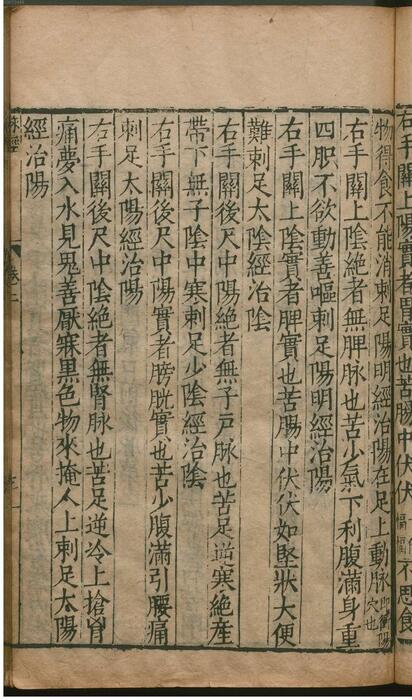 右手關上陽實者胃實也苦腸中伏伏不思食
物得食不能消刺足陽明經治陽在足上動脉即衝陽穴也
右手關上陰絶者無脾脉也苦少氣下利腹滿身重
四肢不欲動善嘔刺足陽明經治陽
右手關上陰實者脾實也苦腸中伏伏如堅狀大便
難刺足太陰經治陰
右手關後尺中陰絶者無子戸脉也苦足逆寒絶産
帶下無子陰中寒刺足少陰經治陰
右手關後尺中陽實者膀胱實也苦少腹滿引腰痛
刺足太陽經治陽
右手關後尺中陰絶者無腎脉也苦足逆冷上搶胷
痛夢入水見鬼善厭寐黒色物來掩人上刺足太陽
經治陽
脉經 卷二